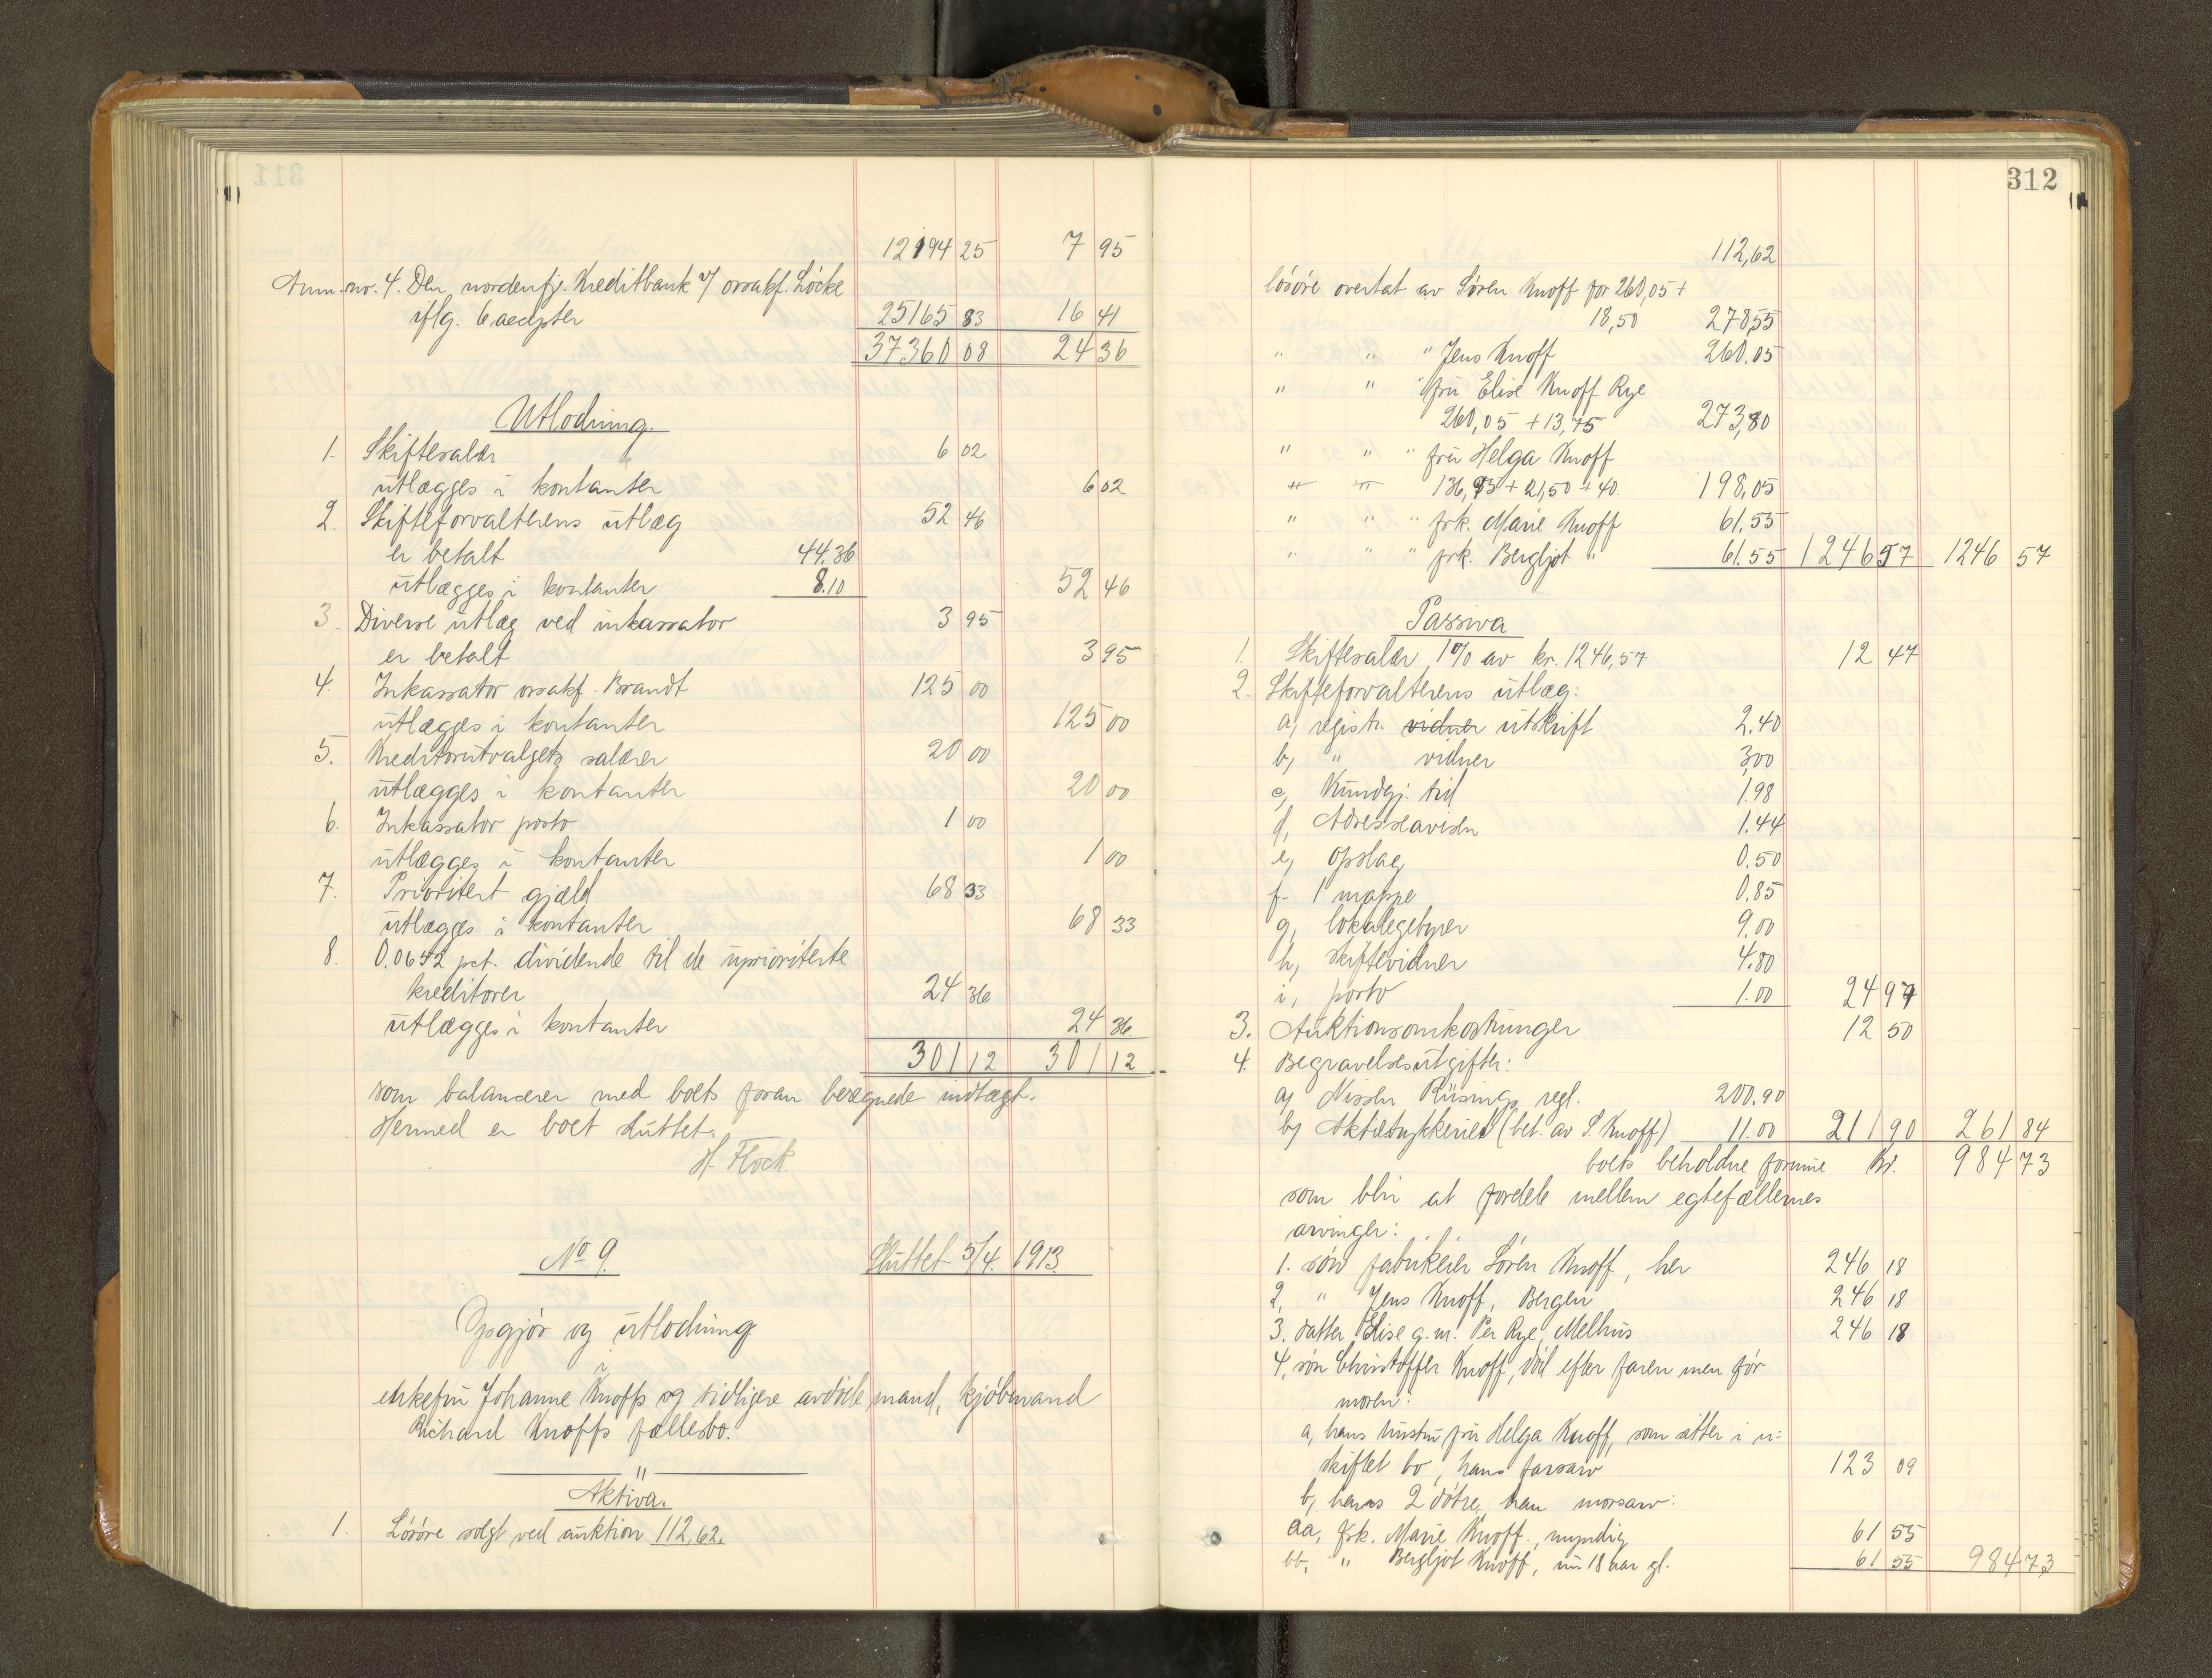 12194 25 7 95
Anm. nr. 4. Den nordenfj. Kreditbank v/ orsakf. Löcke
iflg. 6 accepter 25165 83 16 41
37360 08 24 36
Utlodning.
1. Skiftesalær 6 02
utlægges i kontanter 6 02
2. Skifteforvalterens utlæg 52 46
er betalt 44.36
utlægges i kontanter 8.10 52 46
3. Diverse utlæg ved inkassator 3 95
er betalt 3 95
4. Inkassator orsakf. Brandt 125 00
utlægges i kontanter 125 00
5. Kreditorutvalgets salærer 20 00
utlægges i kontanter 20 00
6. Inkassator porto 1 00
utlægges i kontanter 1 00
7. Prioritert gjæld 68 33
utlægges i kontanter 68 33
8. 0.0652 pct. dividende til de uprioriterte
kreditorer 24 36
utlægges i kontanter 24 36
301 12 301 12
som balancerer med boets foran beregnede indtægt.
Hermed er boet sluttet.
H. Flock.
No 9. Sluttet 5/4. 1913.
Opgjör og utlodning
enkefru Johanne Knoffs og tidligere avdöde mand, kjöbmand
Richard Knoffs fællesbo.
Aktiva.
1. Lösöre solgt ved auktion 112,62.
312
112,62
lösöre overtat av Sören Knoff for 260,05 +
18,50 278,55
" " " Jens Knoff 260.05
" " " fru Elise Knoff Rye
260,05 + 13,75 273,80
" " " fru Helga Knoff
136,55 + 21,50 + 40. 198,05
" " " frk. Marie Knoff 61.55
" " " frk. Bergljot " 61.55 1246 57 1246 57
Passiva
1. Skiftesalær 1% av kr. 1246,57 12 47
2. Skifteforvalterens utlæg:
a, registr. vidner utskrift 2.40
b, " vidner 3,00
c, Kundgj. tid 1.98
d, Adresseavisen 1.44
e, opslag 0.50
f. 1 mappe 0.85
g, lokalegebyrer 9.00
h, skiftevidner 4.80
i, porto 1.00 24 97
3. Auktionsomkostninger 12 50
4. Begravelsesutgifter:
a, Nissen Rüsings regl. 200.90
b, Aktietrykkeriet (bet. av S. Knoff) 11.00 211 90 261 84
boets beholdne formue Kr. 984 73
som blir at fordele mellem egtefællernes
arvinger:
1. sön fabrikeier Sören Knoff, her 246 18
2, " Jens Knoff, Bergen 246 18
3. datter Elise g.m. Per Rye, Melhus 246 18
4, sön Christoffer Knoff, död efter faren men för
moren:
a, hans hustru fru Helga Knoff, som sitter i u=
skiftet bo, hans farsarv 123 09
b, hans 2 dötre, han morsarv:
aa, frk. Marie Knoff., myndig 61 55
bb, " Bergljot Knoff, nu 18 aar gl. 61 55 984 73